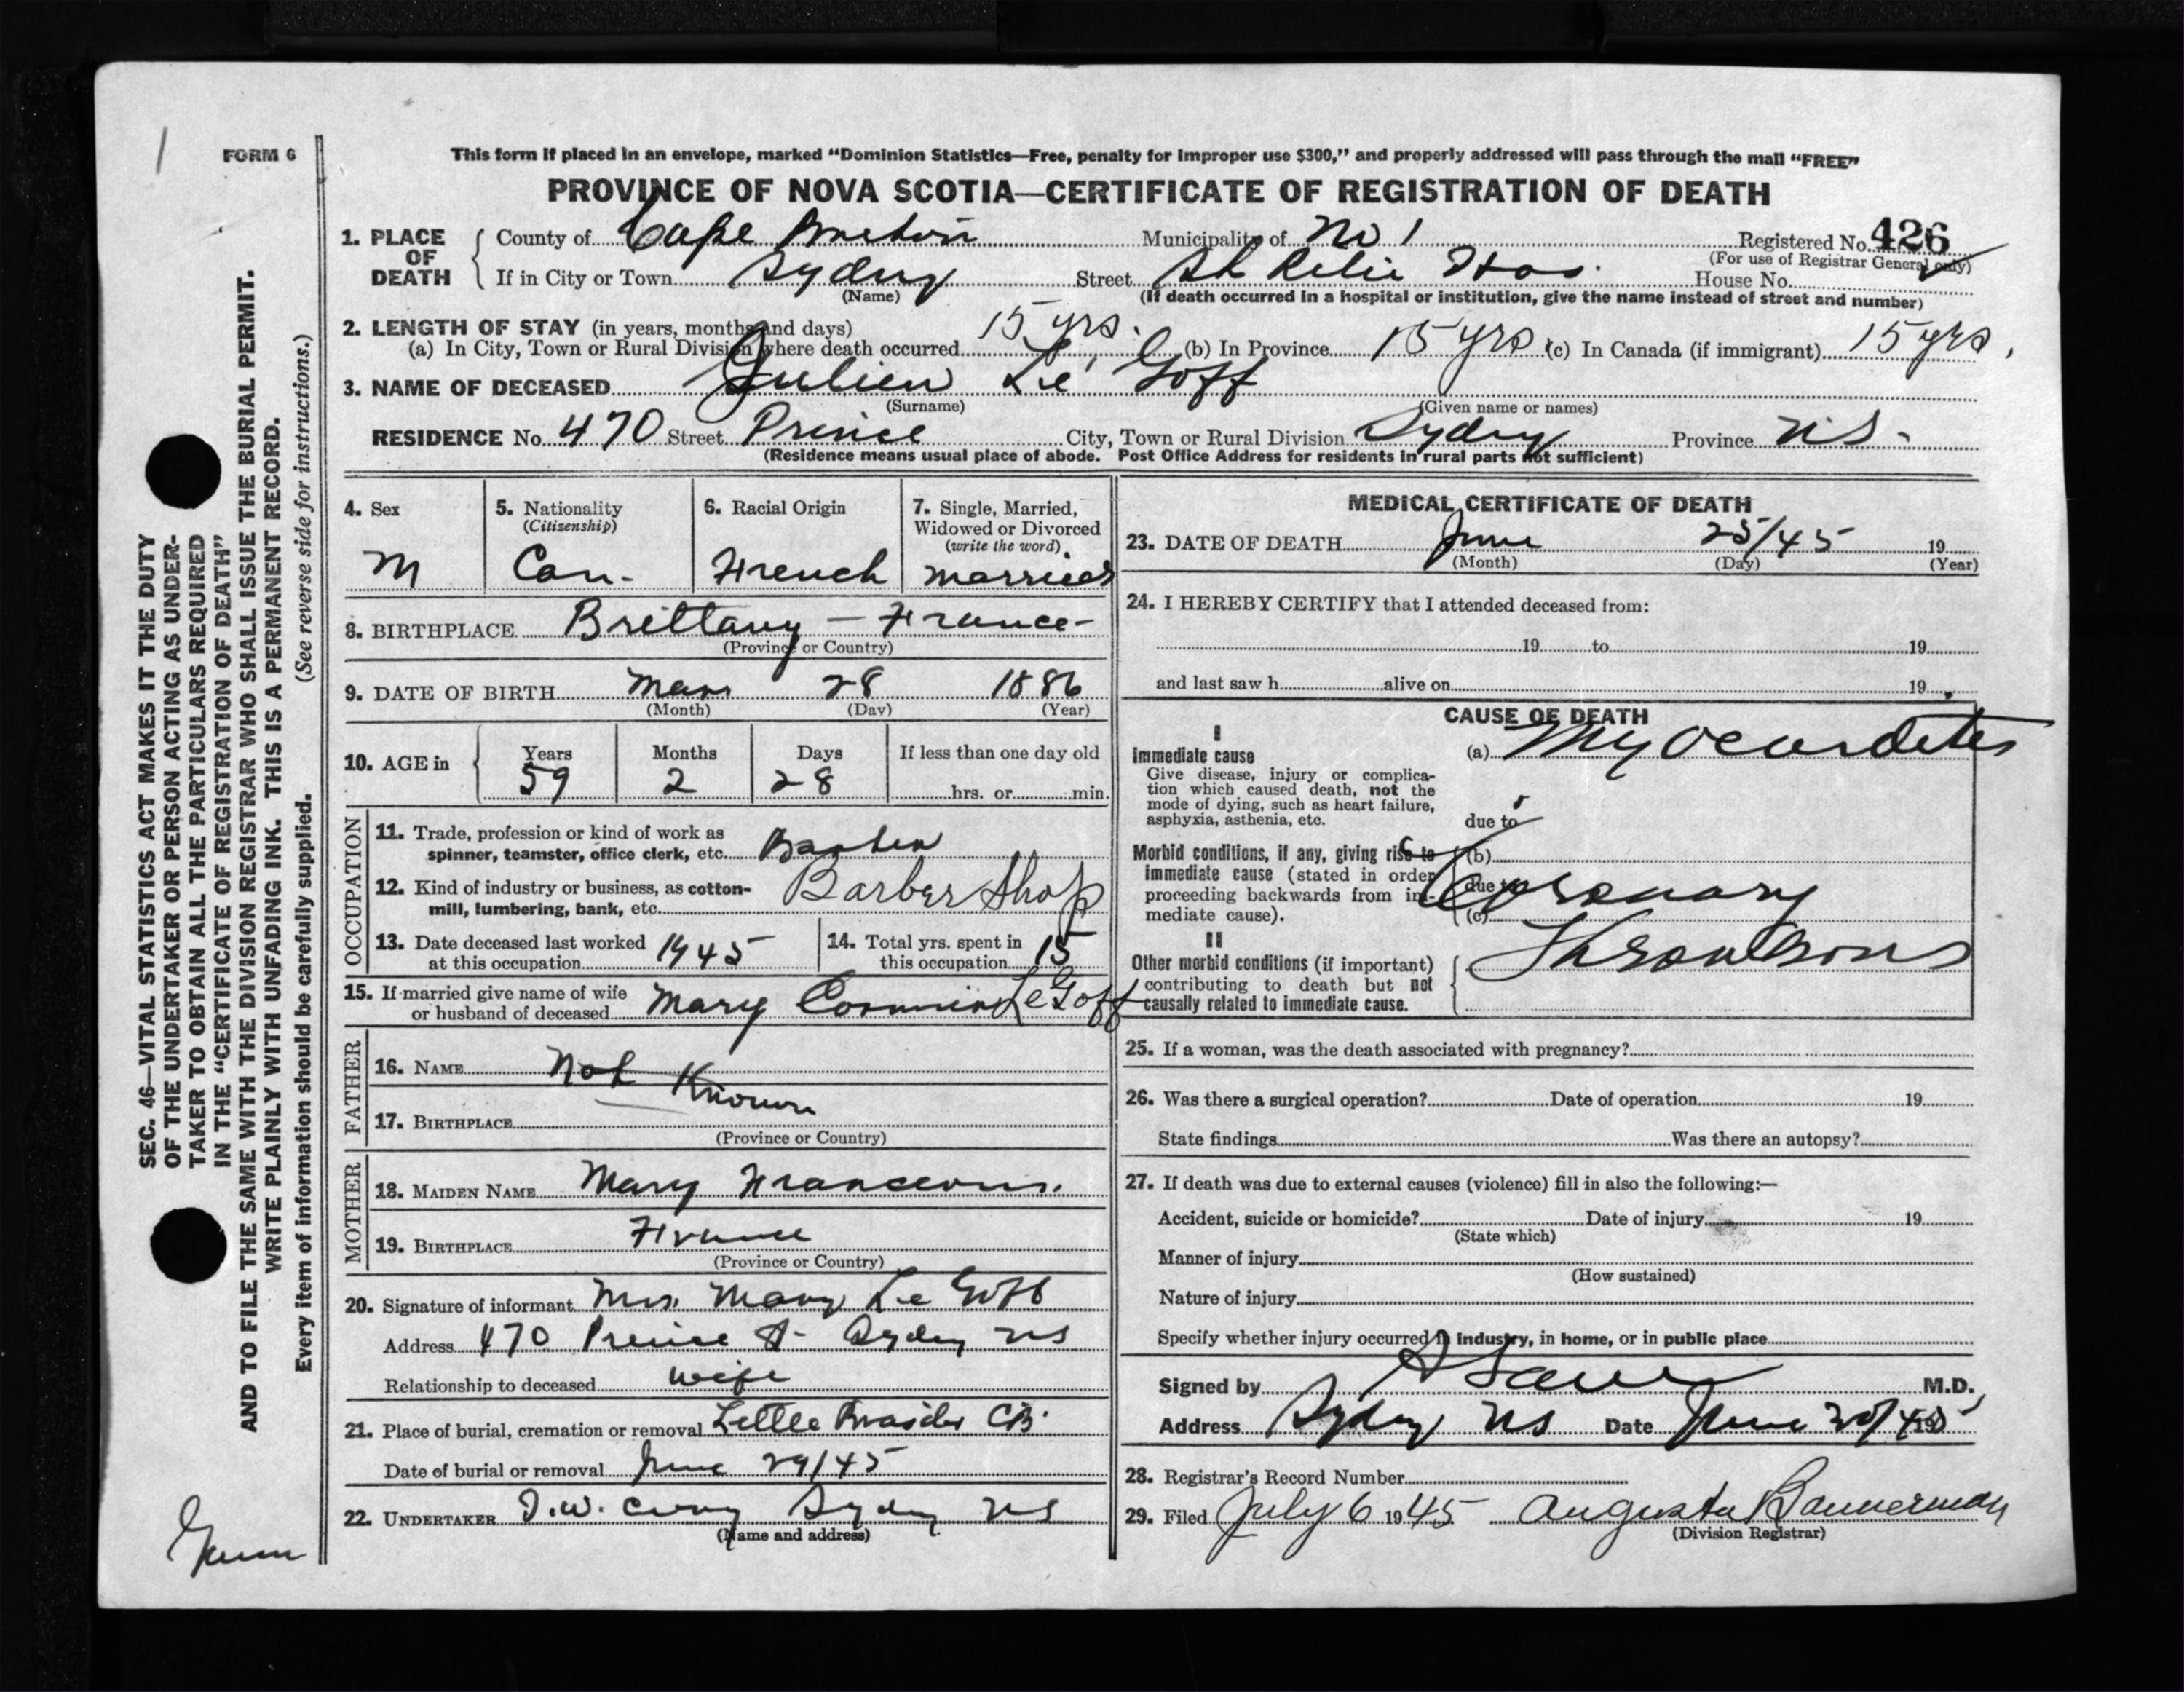 FORM 6
This form if placed in an envelope, marked “Dominion Statistics—Free, penalty for improper use $300,” and properly addressed will pass through the mail “FREE”
PROVINCE OF NOVA SCOTIA—CERTIFICATE OF REGISTRATION OF DEATH
1. PLACE OF DEATH County of Cape Breton Municipality of No 1 Registered No. 426
(For use of Registrar General only)
If in City or Town Sydney Street St Rita Hos. House No.
(Name) (If death occurred in a hospital or institution, give the name instead of street and number)
2. LENGTH OF STAY (in years, months and days)
(a) In City, Town or Rural Division where death occurred 15 yrs. (b) In Province 15 yrs (c) In Canada (if immigrant) 15 yrs.
3. NAME OF DECEASED Julien Le' Goff
(Surname) (Given name or names)
RESIDENCE No. 470 Street Prince City, Town or Rural Division Sydney Province N.S.
(Residence means usual place of abode. Post Office Address for residents in rural parts not sufficient)
4. Sex M
5. Nationality (Citizenship) Can.
6. Racial Origin French
7. Single, Married, Widowed or Divorced (write the word) married
8. BIRTHPLACE Brittany – France –
(Province or Country)
9. DATE OF BIRTH Mar 28 1886
(Month) (Day) (Year)
10. AGE in Years 59 Months 2 Days 28 If less than one day old
hrs. or min.
OCCUPATION
11. Trade, profession or kind of work as
spinner, teamster, office clerk, etc. Barber
12. Kind of industry or business, as cotton-
mill, lumbering, bank, etc. Barber Shop
13. Date deceased last worked
at this occupation 1945
14. Total yrs. spent in
this occupation 15
15. If married give name of wife
or husband of deceased Mary LeGoff
FATHER
16. NAME Not Known
17. BIRTHPLACE
(Province or Country)
MOTHER
18. MAIDEN NAME Mary
19. BIRTHPLACE France
(Province or Country)
20. Signature of informant Mrs. Mary Le Goff
Address 470 Prince St Sydney NS
Relationship to deceased wife
21. Place of burial, cremation or removal Little Bras d'or CB.
Date of burial or removal June 29/45
22. UNDERTAKER Sydney NS
(Name and address)
MEDICAL CERTIFICATE OF DEATH
23. DATE OF DEATH June 25/45 19
(Month) (Day) (Year)
24. I HEREBY CERTIFY that I attended deceased from:
19 to 19
and last saw h alive on 19
CAUSE OF DEATH
I
Immediate cause (a) Myocarditis
Give disease, injury or complica-
tion which caused death, not the
mode of dying, such as heart failure,
asphyxia, asthenia, etc. due to
Morbid conditions, if any, giving rise to (b)
immediate cause (stated in order due to
proceeding backwards from im- Coronary
mediate cause). (c)
II Thrombosis
Other morbid conditions (if important)
contributing to death but not
causally related to immediate cause.
25. If a woman, was the death associated with pregnancy?
26. Was there a surgical operation? Date of operation 19
State findings Was there an autopsy?
27. If death was due to external causes (violence) fill in also the following:—
Accident, suicide or homicide? Date of injury 19
(State which)
Manner of injury
(How sustained)
Nature of injury
Specify whether injury occurred in industry, in home, or in public place
Signed by M.D.
Address Sydney NS Date June 30/45 19
28. Registrar's Record Number
29. Filed July 6 1945 Augusta Bannerman
(Division Registrar)
SEC. 46—VITAL STATISTICS ACT MAKES IT THE DUTY
OF THE UNDERTAKER OR PERSON ACTING AS UNDER-
TAKER TO OBTAIN ALL THE PARTICULARS REQUIRED
IN THE “CERTIFICATE OF REGISTRATION OF DEATH”
AND TO FILE THE SAME WITH THE DIVISION REGISTRAR WHO SHALL ISSUE THE BURIAL PERMIT.
WRITE PLAINLY WITH UNFADING INK. THIS IS A PERMANENT RECORD.
Every item of information should be carefully supplied. (See reverse side for instructions.)